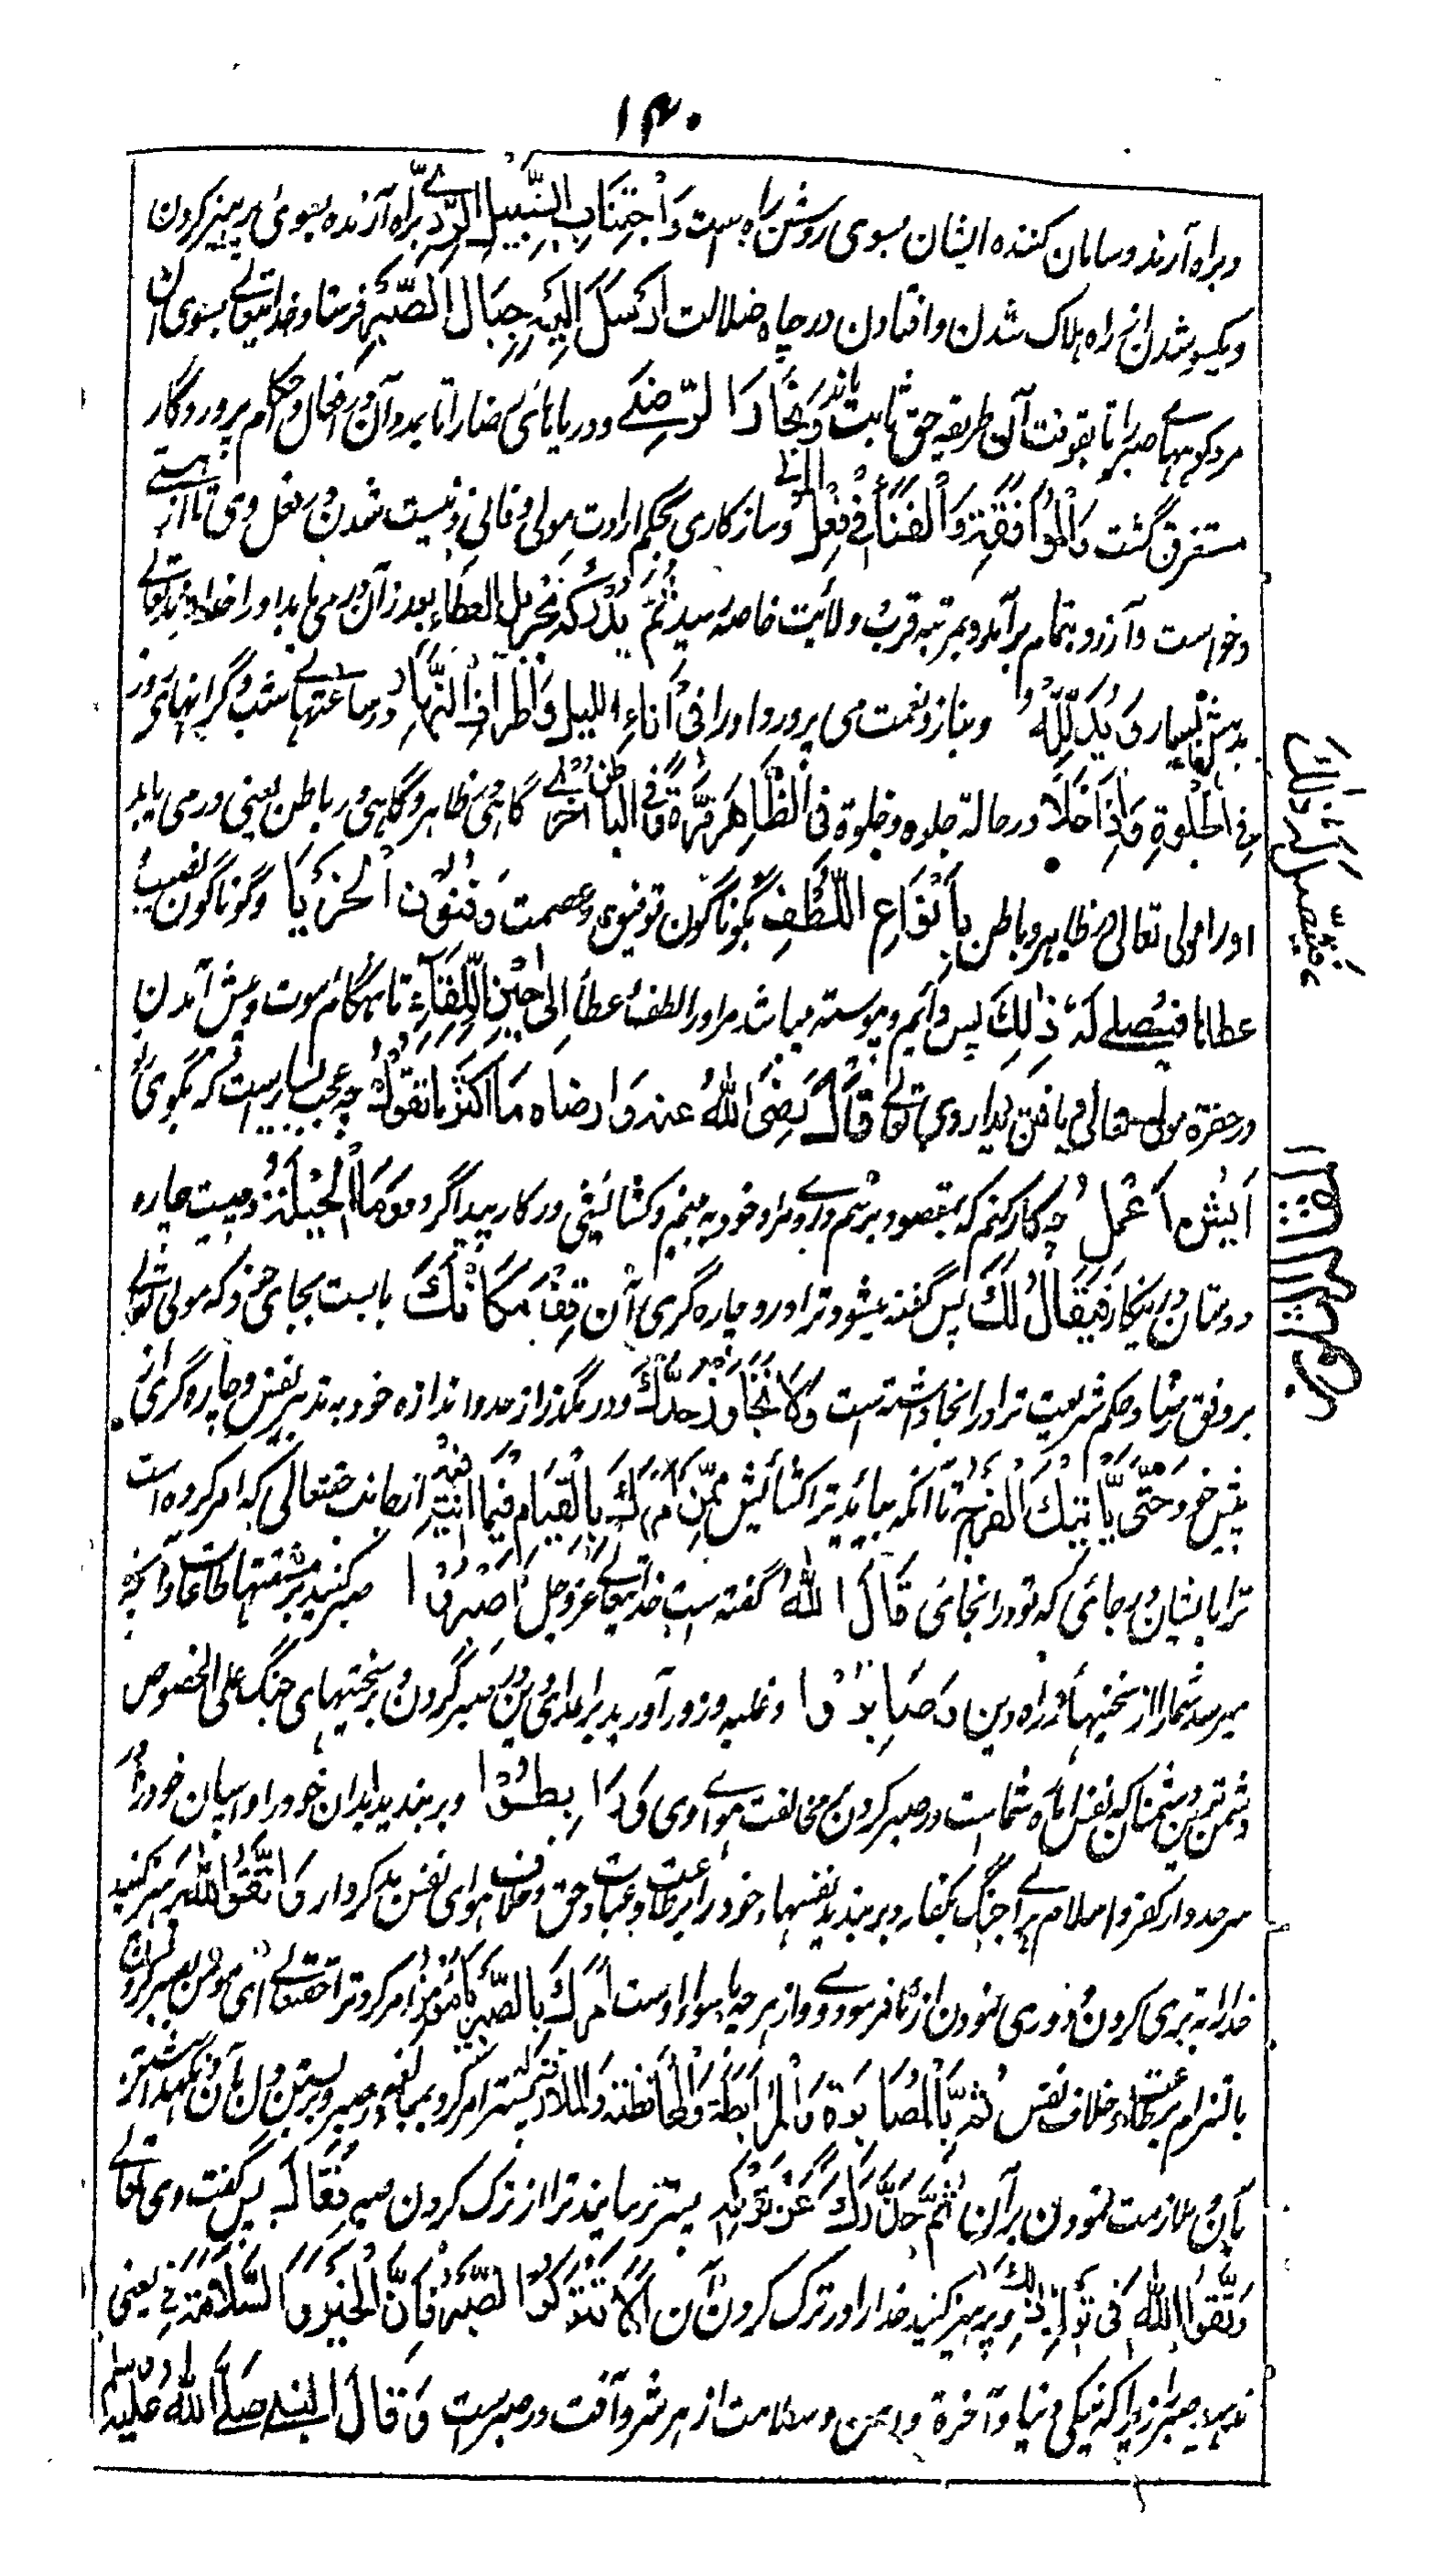 ۱۴۰
وبراه آرنده وسامان کننده ایشان بسوی روشن راه است وَاجْتِنَابِ السَّبِیْلِ الرَّدِیِّ براه آرنده بسوی پرهیز کردن
ویکسو شدن از راه هلاک شدن وافتادن در چاه ضلالت اَرْسَلَ اِلَیْهِ جِبَالَ الصَّبْرِ فرستاد خدایتعالے بسوی آن
مرد کوههاے صبر را تا بقوت آن بر طریقه حق ثابت ماند وَبِحَارَ الرِّضٰے ودریاهای رضا را تا بمدد آن در افعال واحکام پروردگار
مستغرق گشت وَالْمُوَافَقَةِ وَالْفَنَاءِ فِیْ فِعْلِ وسازکاری بحکم ارادت مولی وفانی ونیست شدن در فعل وی تا از هستے
وخواست وآرزو بتمام برآمد وبمرتبه قرب ولایت خاصه رسید ثُمَّ یُدْرِکُهٗ بِجَزِیْلِ الْعَطَاءِ بعد ازان در می یابد او را خداوند تعالے
بخشش بسیار وَیُدَلِّلُهٗ وبناز ونعمت می پرورد او را فِیْ اٰنَاءِ اللَّیْلِ وَاَطْرَافِ النَّهَارِ در ساعتهاے شب وکرانهای روز
فِی الْجَلْوَةِ وَاِذَا خَلَا در حالة جلوه وخلوة فِی الظَّاهِرِ مَرَّةً وَّفِی الْبَاطِنِ اُخْرٰے گاهی در ظاهر وگاهی در باطن یعنی در می یابد
او را مولی تعالی در ظاهر وباطن بِاَنْوَاعِ اللُّطْفِ بگوناگون توفیق وعصمت وَفُنُوْنِ الْجَزَایَا وگوناگون نصیب
عطاها فَیَتَّصِلُ لَهٗ ذٰلِکَ پس دایم وپیوسته میباشد مر او را لطف وعطا اِلٰی حِیْنِ اللِّقَاءِ تا هنگام موت وپیش آمدن
در حضرة مولی تعالی ویافتن دیدار وی تعالے قَالَ رَضِیَ اللّٰهُ عنه وارضاه مَا اَکْثَرَ مَا تَقُوْلُ چه عجب بسیار ست که بگوی تو
اَیْشٍ اَعْمَلُ چه کار کنم که بمقصود برسم وروی مراد خود به بینم وکشایشی در کار پیدا گردد وَمَا الْحِیْلَةُ وچیست چاره
ودستان در ینکار فَیُقَالُ لَکَ پس گفته میشود ترا در چاره گری آن قِفْ مَکَانَکَ بایست بجای خود که مولی تعالی
بر وفق رضا وحکم شریعت ترا در انجا داشته است وَلَا تُجَاوِزْ حَدَّکَ ودر مگذر از حد واندازه خود به تدبیر نفس وچاره گری از
پیش خود حَتّٰی یَاْتِیَکَ الْفَرَجُ تا آنکه بیاید ترا کشایش مِمَّنْ اَمَرَکَ بِالْقِیَامِ فِیْمَا اَنْتَ فِیْهِ از جانب حقتعالی که امر کرده است
ترا بایشان در جائی که تو در انجائی قَالَ اللّٰهُ گفته ست خدایتعالے عزوجل اِصْبِرُوْا صبر کنید بر مشقتها طاعات وآنچه
میرسد شما را از سختیها در راه دین وَصَابِرُوْا وغلبه وزور آورید بر اعدای دین در صبر کردن بر سختیهای جنگ علی الخصوص
دشمن ترین دشمنان که نفس اماره شما ست در صبر کردن بر مخالفت هواے وی وَرَابِطُوْا وبر بندید بدان خود را واسپان خود را در
سرحد دار کفر واسلام براے جنگ کفار وبر بندید نفسهاء خود را بر طاعت وعبادت حق وخلاف هوای نفس بد کردار وَاتَّقُوا اللّٰهَ پرهیز کنید
خدا را به تبری کردن ودوری نمودن از نافرمودے وے واز هرچه ماسواء اوست اَمَرَکَ بِالصَّبْرِ یَا مُؤْمِنُ امر کرد ترا حقتعالے ای مومن بصبر کردن
بالتزام بر طاعت وخلاف نفس ثُمَّ بِالْمُصَابَرَةِ وَالْمُرَابَطَةِ وَالْمُحَافَظَةِ وَالْمُلَازَمَةِ لَهٗ پستر امر کرد بمبالغه در صبر وبربستن دل بآن ونگهداشتن
بآن وملازمت نمودن بر آن ثُمَّ حَذَّرَکَ عَنْ تَرْکِهٖ پستر ترسانید ترا از ترک کردن صبر فَقَالَ پس گفت وی تعالے
وَاتَّقُوا اللّٰهَ فِیْ تَرْکِ ذٰلِکَ وپرهیز کنید خدا را در ترک کردن آن اَلَّا تَتْرُکُوا الصَّبْرَ فَاِنَّ الْخَیْرَ وَالسَّلَامَةَ فِیْهِ یعنی
ندهید صبر را زیرا که نیکی دنیا وآخرة وایمن وسلامت از هر شر وآفت در صبرست وَقَالَ النبے صَلَّے اللّٰهُ عَلَیْهِ وسلم
فَیَتَّصِلُ لَهٗ ذٰلِکَ